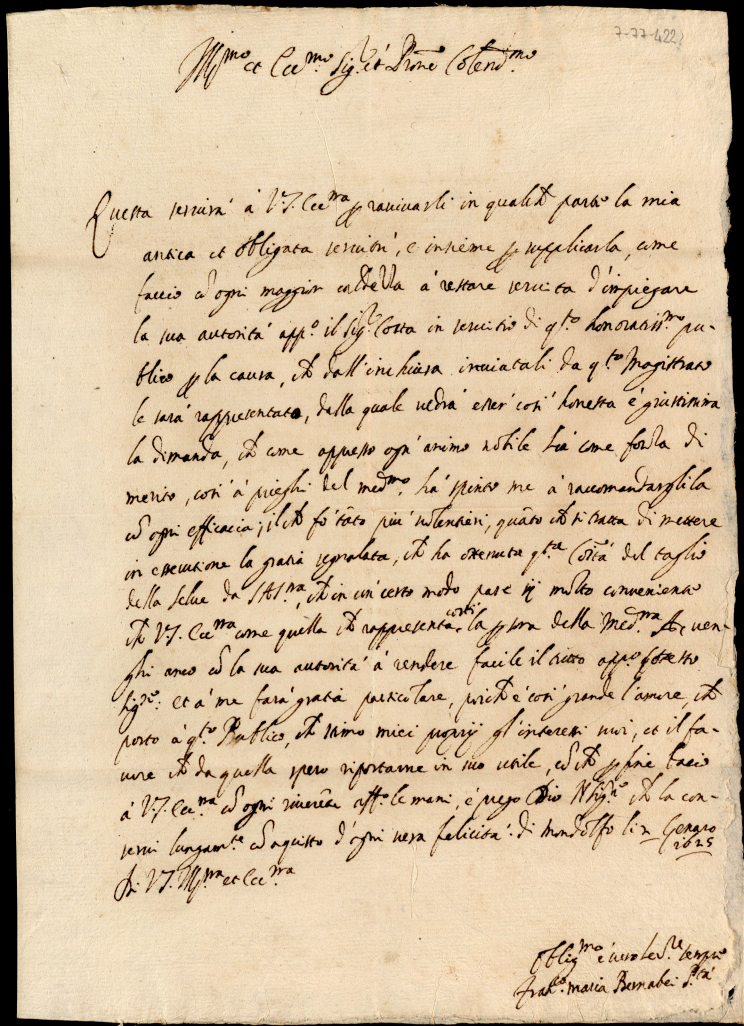 7-77-422
Ill.mo et Ecc.mo Sig.r et Prone Colend.mo
Questa servirà à V.S. Ecc.ma p ravivarli in qualch parte la mia
antica et obligata servitù, e insieme p supplicarla, come
faccio co ogni maggior caldezza à restare servita d'impiegare
la sua autorità app.o il Sig.r Costa in servitio di q.to honoratiss.mo pu-
blico p la causa, ch dall'inchiusa inviatali da q.to Magistrato
le sarà rappresentata, dalla quale vedrà esser così honesta e giustissima
la dimanda, ch come appresso ogn'animo nobile hà come forza di
merito, così à prieghi del med.mo hà spinto me à raccomandargliela
co ogni efficacia; il ch fò tāto più volentieri, quāto ch si tratta di mettere
in essecutione la gratia segnalata, ch ha ottenuta q.ta Cōtà del taglio
della selva da S.A.S.ma, ch in un certo modo pare sij molto conveniente
ch V.S. Ecc.ma come quella ch rappresenta costì la psona della Med.ma A. ven-
ghi anco co la sua autorità à rendere facile il tutto app.o
Sig.re: et à me farà gratia particolare, poich è così grande l'amore, ch
porto à q.to Publico, ch stimo miei proprij gl'interessi suoi, et il fa-
vore ch da quella spero riportarne in suo utile, co ch p fine bacio
à V.S. Ecc.ma co ogni riverēza aff.te le mani, e prego Dio N Sig.re ch la con-
servi lungam.te co aquisto d'ogni vera felicità. di Mondolfo li 2 Genaro
1625
Di V.S. Ill.ma et Ecc.ma
Oblig.mo e vero Se.re sempre
Fran.co Maria Bernabei P.tà